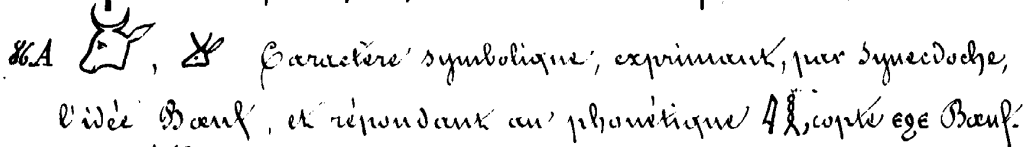 86.A 𓃾, Caractère symbolique, exprimant, par synecdoche,
l'idée Bœuf, et répondant au phonétique 𓇋𓎛, copte ⲉϩⲉ Bœuf.